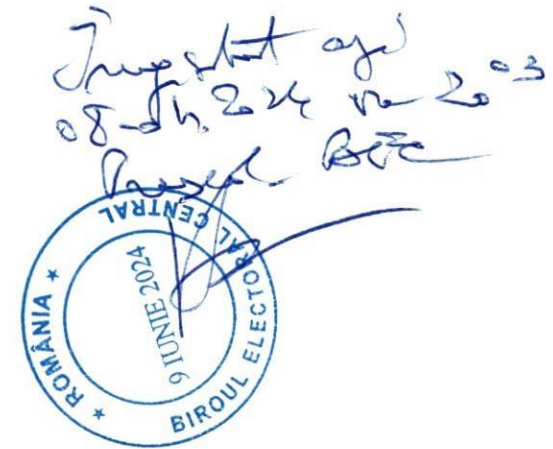 Înregistrat azi
2024 20⁰³
Președinte BEC
ROMÂNIA * BIROUL ELECTORAL CENTRAL *
9 IUNIE 2024